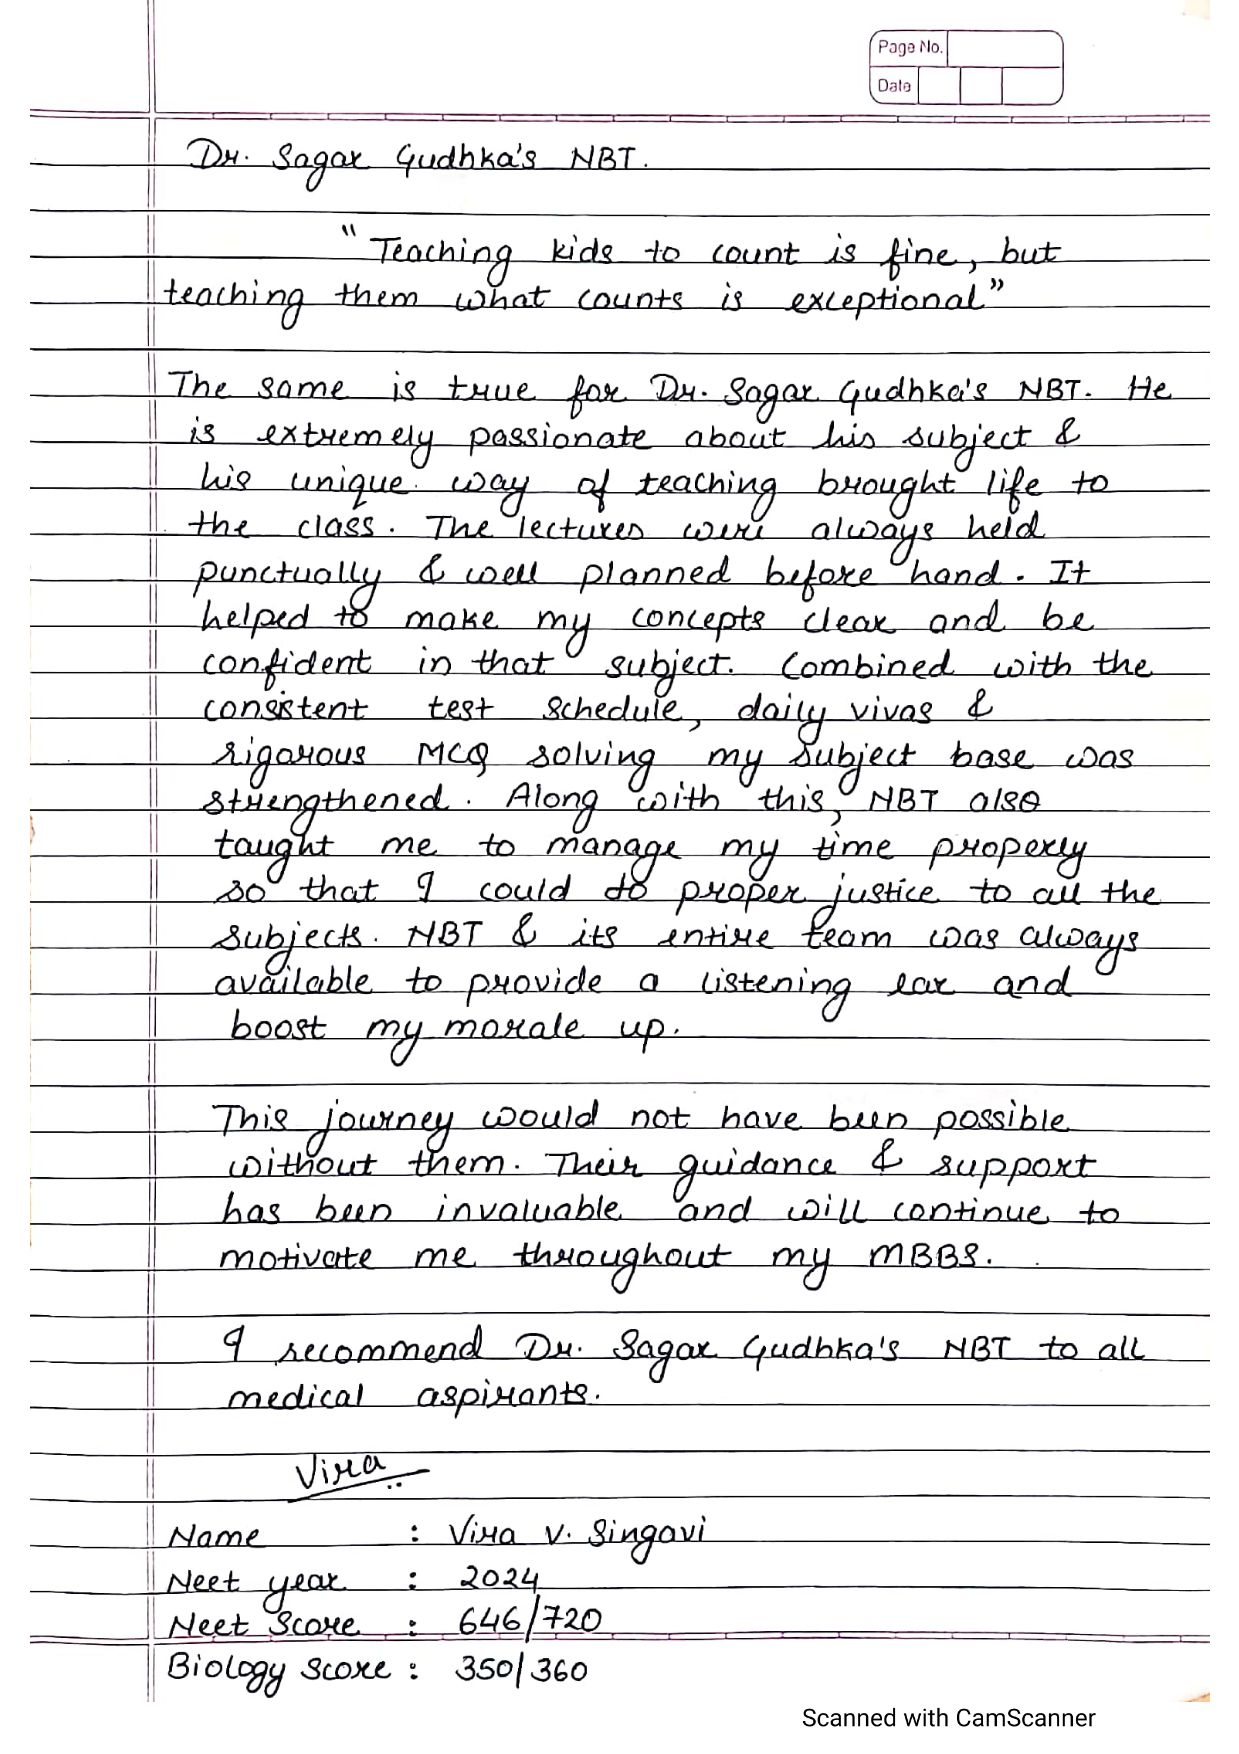 Page No.
Date
Dr. Sagar Gudhka's NBT.
"Teaching kids to count is fine, but
teaching them what counts is exceptional"
The same is true for Dr. Sagar Gudhka's NBT. He
is extremely passionate about his subject &
his unique way of teaching brought life to
the class. The lectures were always held
punctually & well planned before hand. It
helped to make my concepts clear and be
confident in that subject. Combined with the
consistent test schedule, daily vivas &
rigorous MCQ solving my subject base was
strengthened. Along with this, NBT also
taught me to manage my time properly
so that I could do proper justice to all the
subjects. NBT & its entire team was always
available to provide a listening ear and
boost my morale up.
This journey would not have been possible
without them. Their guidance & support
has been invaluable and will continue to
motivate me throughout my MBBS.
I recommend Dr. Sagar Gudhka's NBT to all
medical aspirants.
Vira
Name : Vira V. Singavi
Neet year : 2024
Neet Score : 646/720
Biology Score : 350/360
Scanned with CamScanner